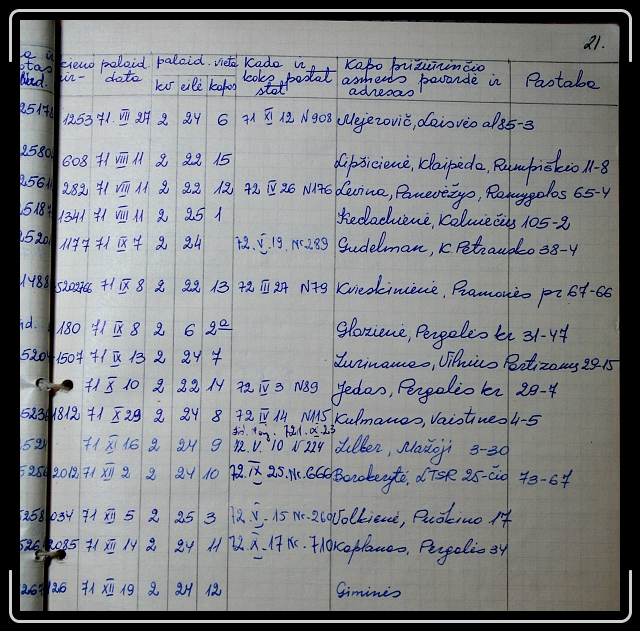 21.
cieno palaid. palaid. vieta Kada ir Kapo prižiūrinčio
data koks pastat asmens pavardė ir Pastaba
kv eilė kapas adresas
1253 71. VII 27 2 24 6 71 XI 12 N908 Mejerovič, Laisvės al 85-3
608 71 VIII 11 2 22 15 Lipšicienė, Klaipėda, Rumpiškio 11-8
282 71 VIII 11 2 22 12 72 IV 26 N176 Levina, Panevėžys, Ramygalos 65-4
1341 71 VIII 11 2 25 1 105-2
1177 71 IX 7 2 24 72. V. 19. Nr. 289 Gudelman, K. Petrausko 38-4
71 IX 8 2 22 13 72 III 27 N79 Kvieskinienė, Pramonės pr. 67-66
180 71 IX 8 2 6 2a Glazienė, Pergalės kr 31-47
1507 71 IX 13 2 24 7 Vilnius Partizanų 29-15
71 X 10 2 22 14 72 IV 3 N89 Jedas, Pergalės kr 29-7
1812 71 X 29 2 24 8 72 IV 14 N115 Kulmanas, Vaistinės 4-5
71 XI 16 2 24 9 72. V. 10 N 224 Zilber, Mažoji 3-30
2012 71 XII 2 2 24 10 72. IX 25. Nr. 666 LTSR 25-čio 73-67
034 71 XII 5 2 25 3 72 V. 15 Nr. 260 Volkienė, Puškino 17
2085 71 XII 14 2 24 11 72. X. 17 Nr. 710 Kaplanas, Pergalės 34
126 71 XII 19 2 24 12 Giminės